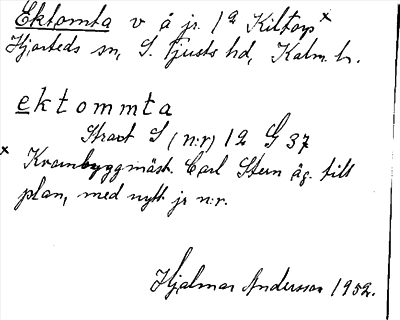 Ektomta v å jr. 12 Kiltorp x
Hjorteds sn, S. Tjusts hd, Kalm. l.
ektommta
Strax S (n:r) 12 G 37
x Kvarnbyggmäst. Carl Stern äg. till
plan, med nytt jr n:r.
Hjalmar Andersson 1952.